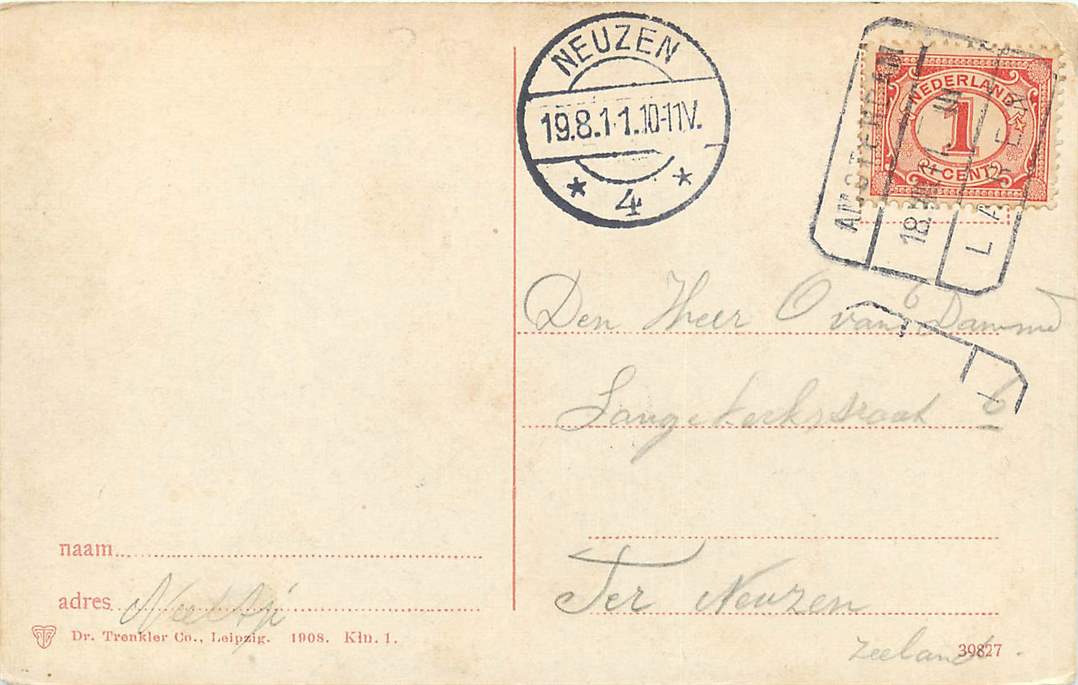 NEUZEN
19.8.1-1.10-11V.
* 4 *
NEDERLAND
1
CENT
AMSTERDAM
18.
Den Heer O van Damme
Langekerkstraat 6
Ter Neuzen
Zeeland
naam
adres Neeltje
Dr. Trenkler Co., Leipzig. 1908. Kln. 1.
39827